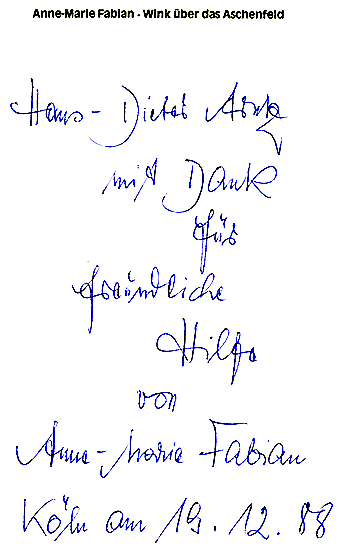 Anne-Marie Fabian - Wink über das Aschenfeld
Hans-Dieter Arntz
mit Dank
für
freundliche
Hilfe
von
Anne-Marie Fabian
Köln am 19.12.88